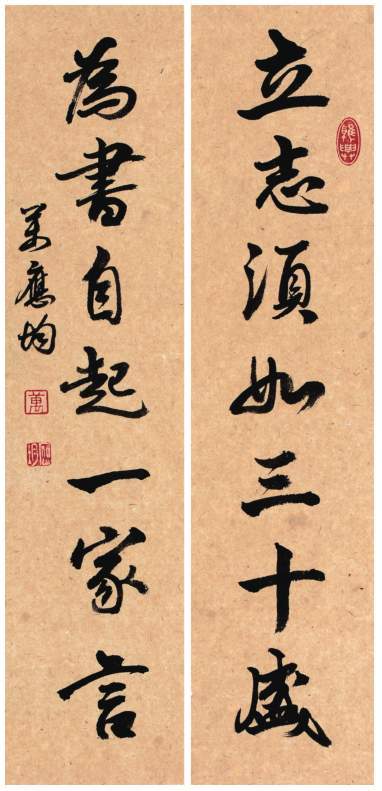 立志須如三十盛
為書自起一家言
萬應均
萬